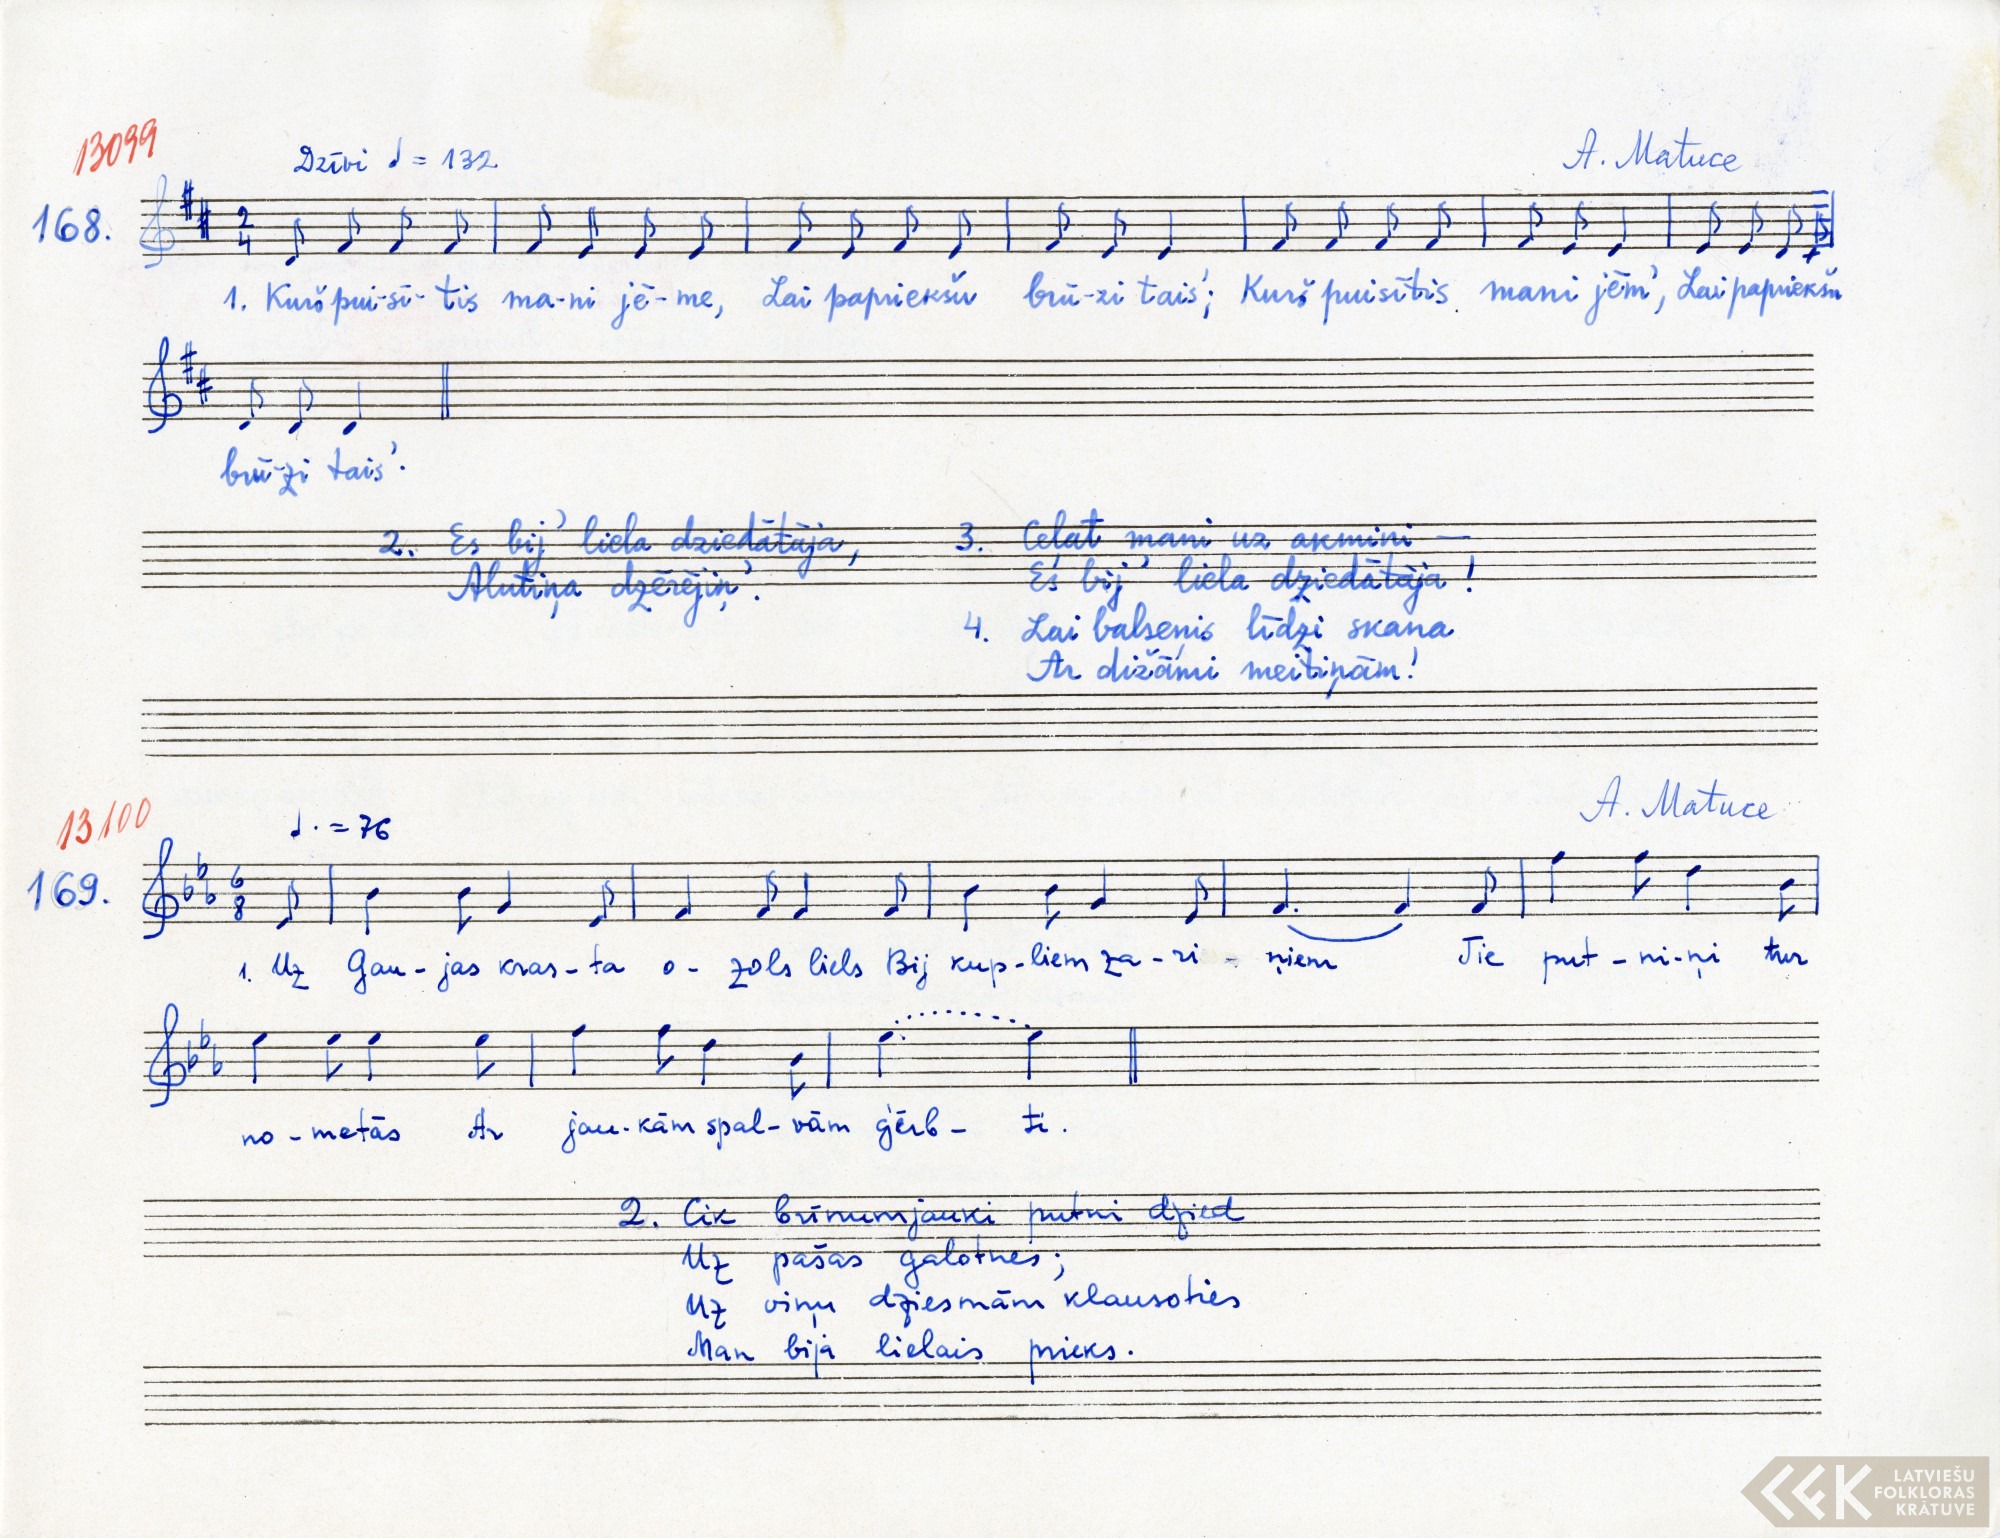 13099
Dzīvi ♩ = 132
A. Matuce
168.
2
4
1. Kurš pui-sī-tis ma-ni jē-me, Lai papriekšu brū-zi tais'; Kurš puisītis mani jēm', Lai papriekšu
brū-zi tais'.
2. Es bij' liela dziedātāja,
Alutiņa dzērējiņ'.
3. Celat mani uz akmini —
Es bij' liela dziedātāja!
4. Lai balsenis līdzi skana
Ar dižāmi meitiņām!
13100
♩. = 76
A. Matuce
169.
6
8
1. Uz Gau-jas kras-ta o-zols liels Bij kup-liem za-ri-ņiem Tie put-ni-ņi tur
no-metās Ar jau-kām spal-vām ģērb-ti.
2. Cik brīnumjauki putni dzied
Uz pašas galotnes;
Uz viņu dziesmām klausoties
Man bija lielais prieks.
LATVIEŠU
FOLKLORAS
KRĀTUVE